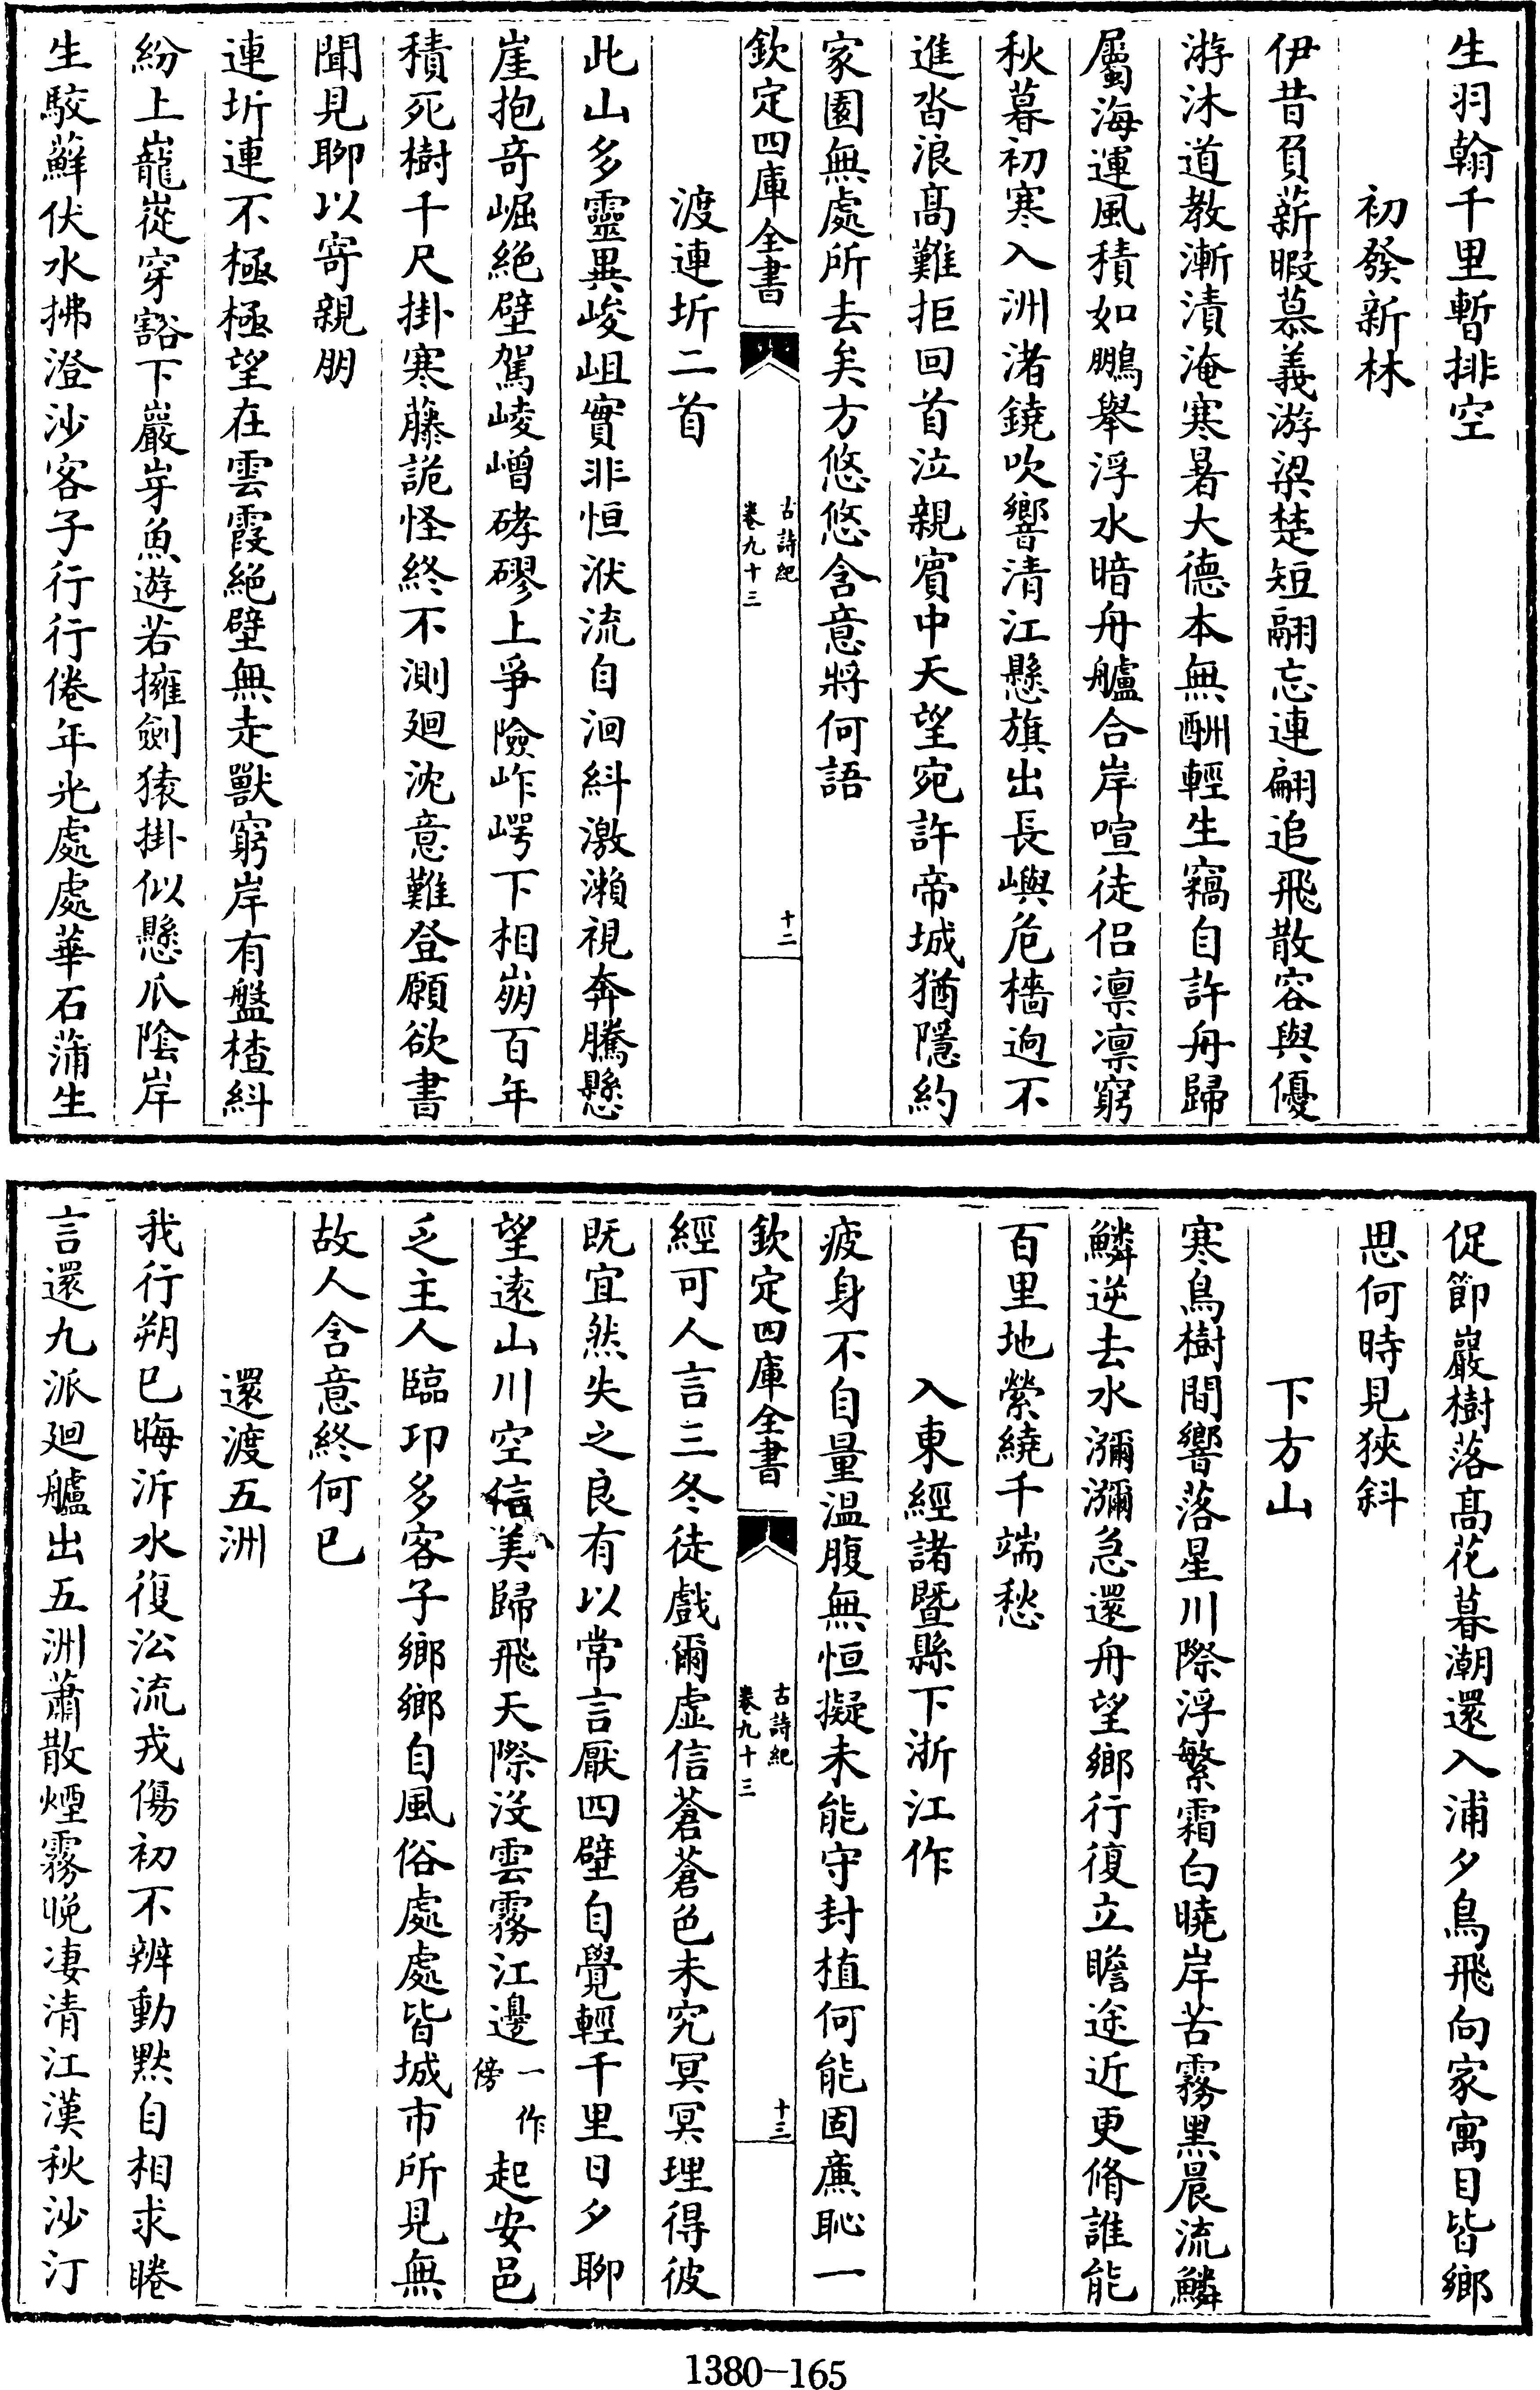 生羽翰千里暫排空
初發新林
伊昔負薪暇慕義游梁楚短翮忘連翩追飛散容與優
游沐道教漸漬淹寒暑大德本無酬輕生竊自許舟歸
屬海運風積如鵬舉浮水暗舟艫合岸喧徒侶凛凛窮
秋暮初寒入洲渚鐃吹響清江懸旗出長嶼危檣逈不
進沓浪髙難拒回首泣親賔中天望宛許帝城猶隱約
家園無處所去矣方悠悠含意將何語
欽定四庫全書
古詩紀
卷九十三
十二
渡連圻二首
此山多靈異峻岨實非恒洑流自洄紏激瀨視奔騰懸
崖抱竒崛絶壁駕崚嶒硣磟上爭險岞崿下相崩百年
積死樹千尺掛寒藤詭怪終不測廻沈意難登願欲書
聞見聊以寄親朋
連圻連不極極望在雲霞絶壁無走獸窮岸有盤楂紏
紛上巃嵸穿豁下巖岈魚遊若擁劍猿掛似懸爪陰岸
生駮蘚伏水拂澄沙客子行行倦年光處處華石蒲生
促節巖樹落髙花暮潮還入浦夕鳥飛向家寓目皆鄉
思何時見狹斜
下方山
寒鳥樹間響落星川際浮繁霜白曉岸苦霧黒晨流鱗
鱗逆去水瀰瀰急還舟望鄉行復立瞻途近更脩誰能
百里地縈繞千端愁
入東經諸暨縣下浙江作
疲身不自量温腹無恒擬未能守封植何能固㢘恥一
欽定四庫全書
古詩紀
卷九十三
十三
經可人言三冬徒戲爾虚信蒼蒼色未究冥冥理得彼
既宜然失之良有以常言厭四壁自覺輕千里日夕聊
望逺山川空信美歸飛天際沒雲霧江邊一作傍起安邑
乏主人臨卭多客子鄉鄉自風俗處處皆城市所見無
故人含意終何已
還渡五洲
我行朔已晦泝水復㳂流戎傷初不辨動黙自相求睠
言還九派廻艫出五洲蕭散煙霧晩凄清江漢秋沙汀
1380-165